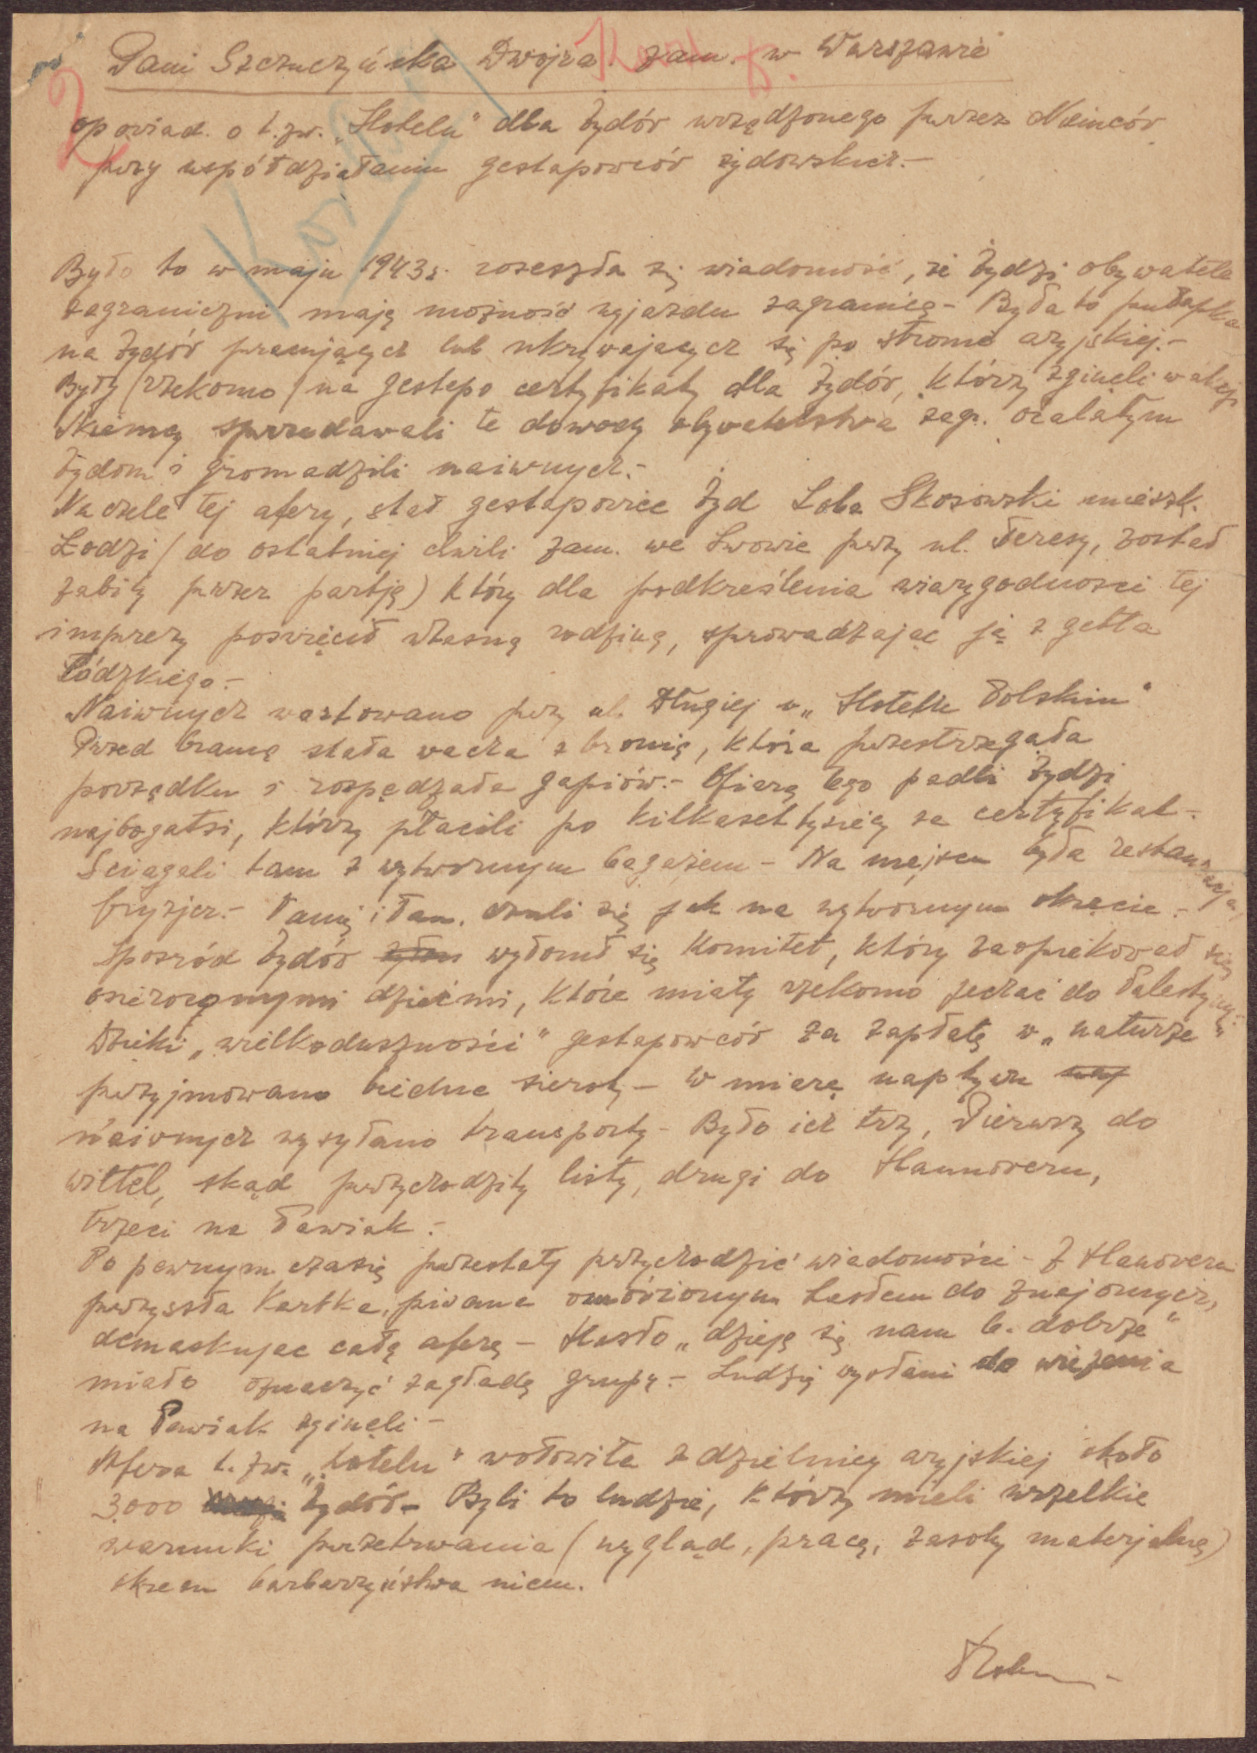 Pani Szczuczyńska Dwojra zam. w Warszawie
opowiad. o t.zw. „Hotelu" dla żydów urządzonego przez Niemców
przy współdziałaniu gestapowców żydowskich.-
Było to w maju 1943 r. rozeszła się wiadomość, że Żydzi obywatele
zagraniczni mają możność wyjazdu zagranicę - Była to pułapka
na żydów pracujących lub ukrywających się po stronie aryjskiej.-
Były (rzekomo) na gestapo certyfikaty dla żydów, którzy zginęli w akcji
Niemcy sprzedawali te dowody obywatelstwa zagr. ocalałym
żydom i gromadzili naiwnych.-
Na czele tej afery, stał gestapowiec żyd Loba Skosowski mieszk.
Łodzi (do ostatniej chwili zam. we Lwowie przy ul. Teresy, został
zabity przez partją) który dla podkreślenia wiarygodności tej
imprezy poświęcił własną rodzinę, sprowadzając ją z getta
łódzkiego.-
Naiwnych wartowano przy ul. Długiej w „Hotelu Polskim"
Przed bramą stała wacha z bronią, która przestrzegała
porządku i rozpędzała gapiów.- Ofiarą tego padli żydzi
najbogatsi, którzy płacili po kilkaset tysięcy za certyfikat.-
Ściągali tam z wytwornym bagażem - Na miejscu była restauracja,
fryzjer.- Panie i Pan. czuli się jak na wytwornym okręcie.-
Sposród żydów wyłonił się Komitet, który zaopiekował się
osieroconymi dziećmi, które miały rzekomo jechać do Palestyny.-
Dzięki „wielkoduszności" gestapowców za zapłatą w „naturze"
przyjmowano biedne sieroty - W miarę napływu
naiwnych wysyłano transporty - Było ich trzy, Pierwszy do
Wittel, skąd przychodziły listy, drugi do Hannoveru,
trzeci na Pawiak.-
Po pewnym czasie przestały przychodzić wiadomości - Z Hanoveru
przyszła kartka, pisana omówionym hasłem do znajomych,
demaskujac całą aferę - Hasło „dzieje się nam b. dobrze"
miało oznaczyć zagładę grupy.- Ludzie wysłani do więzienia
na Pawiak zginęli -
Afera t. zw. „hotelu" wołowiła z dzielnicy aryjskiej około
3.000 żydów - Byli to ludzie, którzy mieli wszelkie
warunki przetrwania (wygląd, pracę, zasoby materjalne)
okresu barbarzyństwa niem.